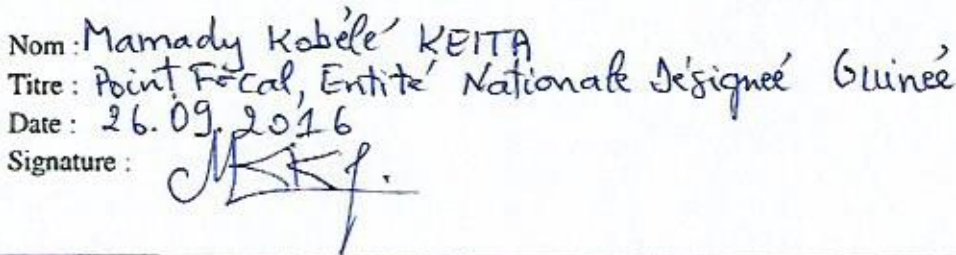 Nom : Mamady Kobélé KEITA
Titre : Point Focal, Entité Nationale Désigneé Guineé
Date : 26.09.2016
Signature :